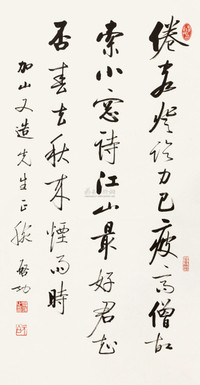 倦客登临力已疲高僧故
索小窗诗江山最好君知
否春去秋来煙雨時
加山又造先生正腕 啓功